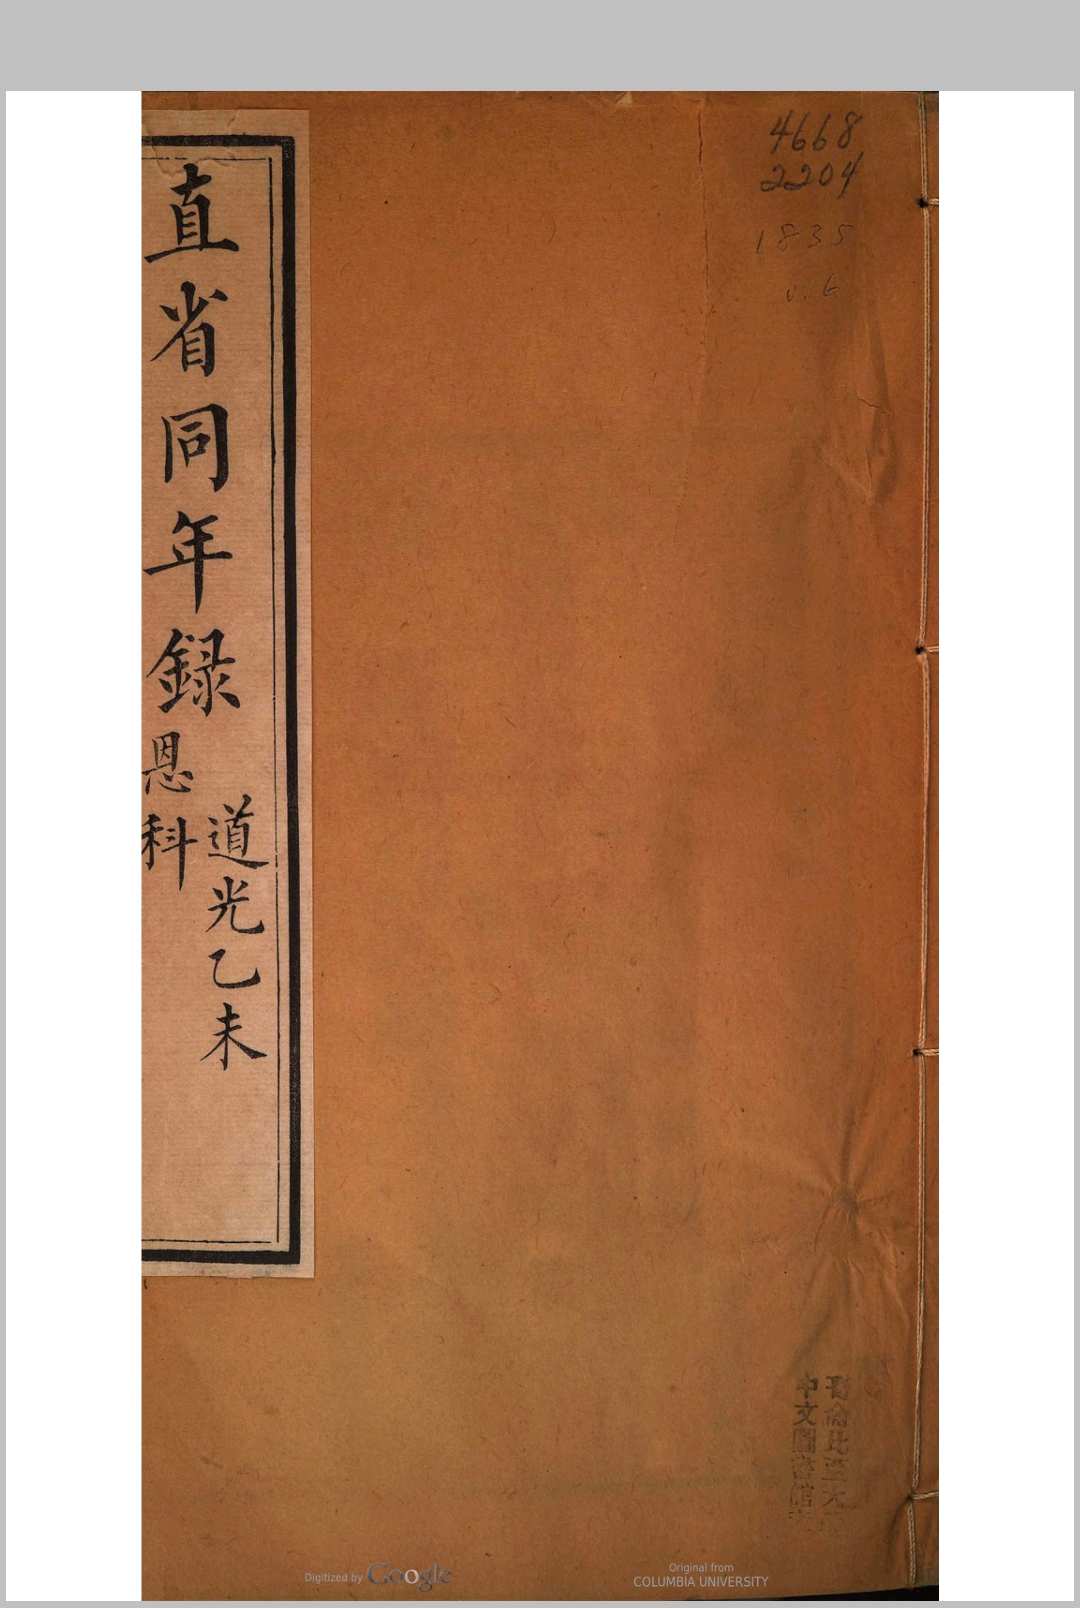 4668
2204
1835
v. 6
直省同年録
道光乙未
恩科
哥倫比亞大
中文圖書館
Digitized by Google
Original from
COLUMBIA UNIVERSITY